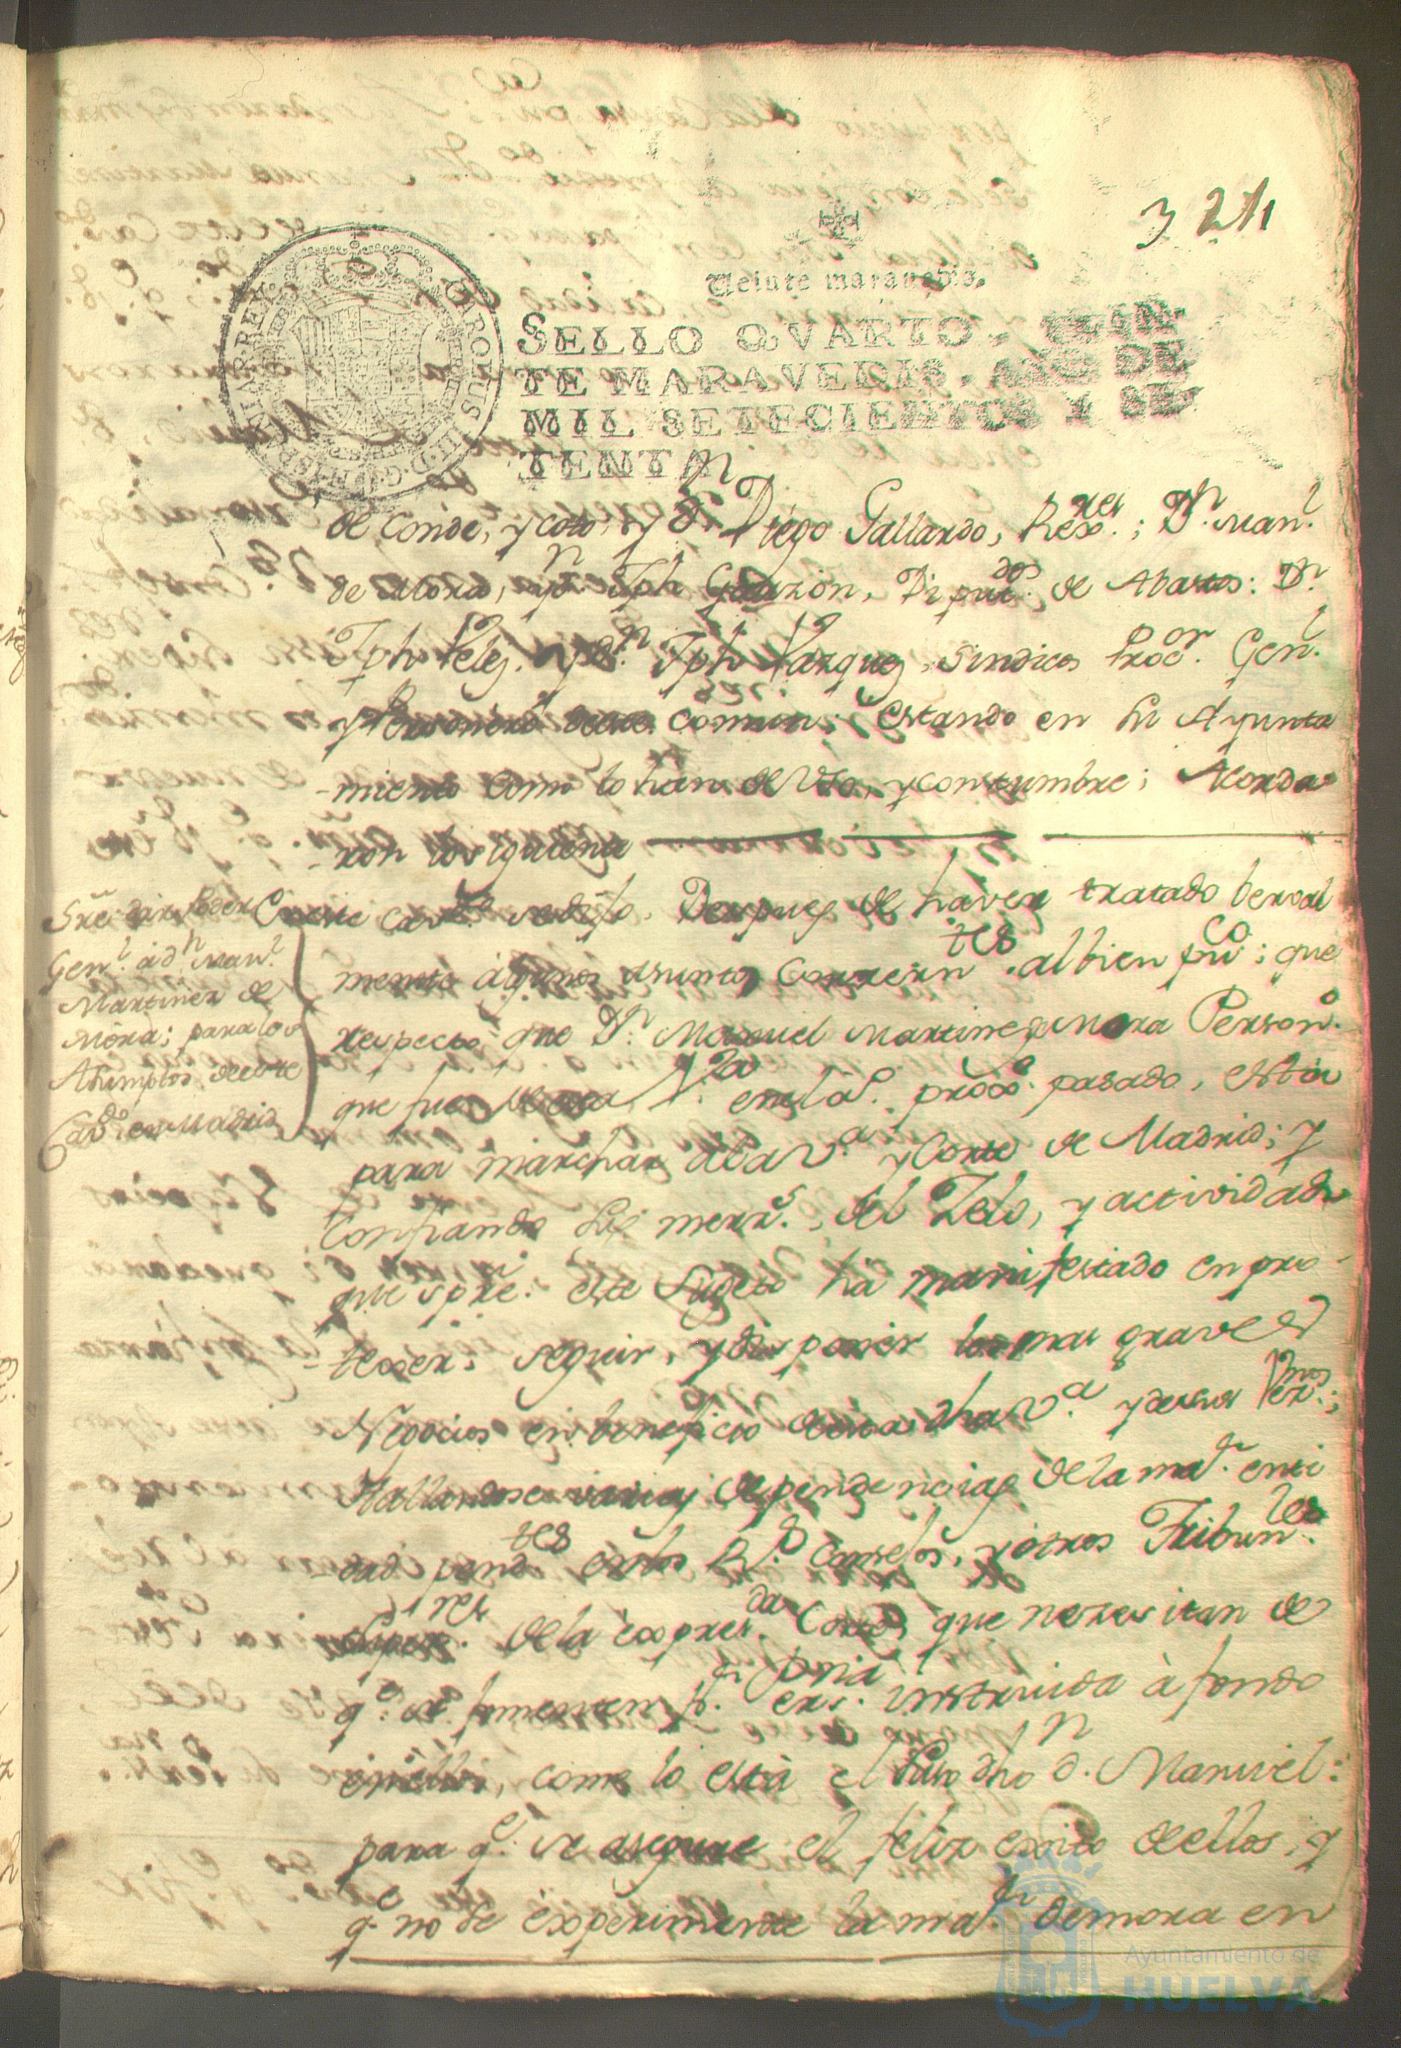 321
Veinte maravedis.
SELLO QVARTO, VEIN-
TE MARAVEDIS, AÑO DE
MIL SETECIENTOS Y SE-
TENTA
CAROLUS III D. G. HISPANIAR. REX
de Conde, y coto, y Dn. Diego Gallardo, Rexres.; Dn. Manl.
de Mora, y Dn. Jph Garzón, Diputdos. de Abastos: Dn.
Jph Velez. y Dn. Jph Vazquez, Sindicos Procor. Genl.
y Personero deste comun: estando en su Ayunta
-miento como lo han de Uso, y constumbre; Acorda-
-ron lo siguiente
Sre. dar Poder
Genl. à dn. Manl.
Martinez de
Mora; para los
Asumptos de este
Cavdo. en Madrid
En este Cavdo. se dijo. Despues de haver tratado berval
mente algunos asuntos Correspontes. al bien puco; que
respecto que Dn. Manuel Martinez de Mora Persono.
que fue de esta Va. en el a. proxo. pasado, está
para marchar à la Va. y Corte de Madrid; y
Confiando Sus merrs. del Zelo, y actividad
que spre. este Sugeto ha manifestado en pro-
-teger, seguir, y disponer los mas graves
Negocios en beneficio de esta dha Va. y de sus Vexnos.;
Hallandose varias dependencias de la mar. enti
dad pendtes en los Rs. Consejos, y otros Tribunles
superres. de la expresda Corte, que necesitan de
qe. se fomenten pr. persona instruida à fondo
en ellos, como lo està el dho dn. Manuel:
para qe. se asegure el feliz exsito de ellos, y
qe. no se experimente la mar. demora en
Ayuntamiento de
HUELVA